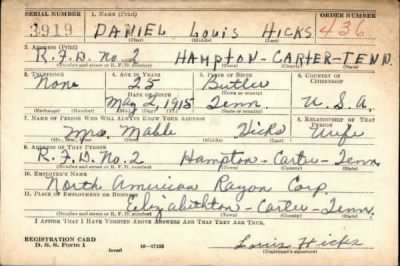 SERIAL NUMBER 1. NAME (Print) ORDER NUMBER
3919 DANIEL LOUIS HICKS 436
(First) (Middle) (Last)
2. ADDRESS (Print)
R.F.D. No. 2 HAMPTON-CARTER-TENN.
(Number and street or R. F. D. number) (Town) (County) (State)
3. TELEPHONE 4. AGE IN YEARS 5. PLACE OF BIRTH 6. COUNTRY OF CITIZENSHIP
None 25 Butler
DATE OF BIRTH
May 2, 1915 Tenn. U.S.A.
(Exchange) (Number) (Mo.) (Day) (Yr.) (State or country)
7. NAME OF PERSON WHO WILL ALWAYS KNOW YOUR ADDRESS 8. RELATIONSHIP OF THAT PERSON
Mrs. Mable Hicks Wife
(Mr., Mrs., Miss) (First) (Middle) (Last)
9. ADDRESS OF THAT PERSON
R.F.D. No. 2 Hampton-Carter-Tenn.
(Number and street or R. F. D. number) (Town) (County) (State)
10. EMPLOYER'S NAME
North American Rayon Corp.
11. PLACE OF EMPLOYMENT OR BUSINESS
Elizabethton-Carter-Tenn.
(Number and street or R. F. D. number) (Town) (County) (State)
I AFFIRM THAT I HAVE VERIFIED ABOVE ANSWERS AND THAT THEY ARE TRUE.
REGISTRATION CARD
D. S. S. Form 1 (over) Louis Hicks
(Registrant's signature)